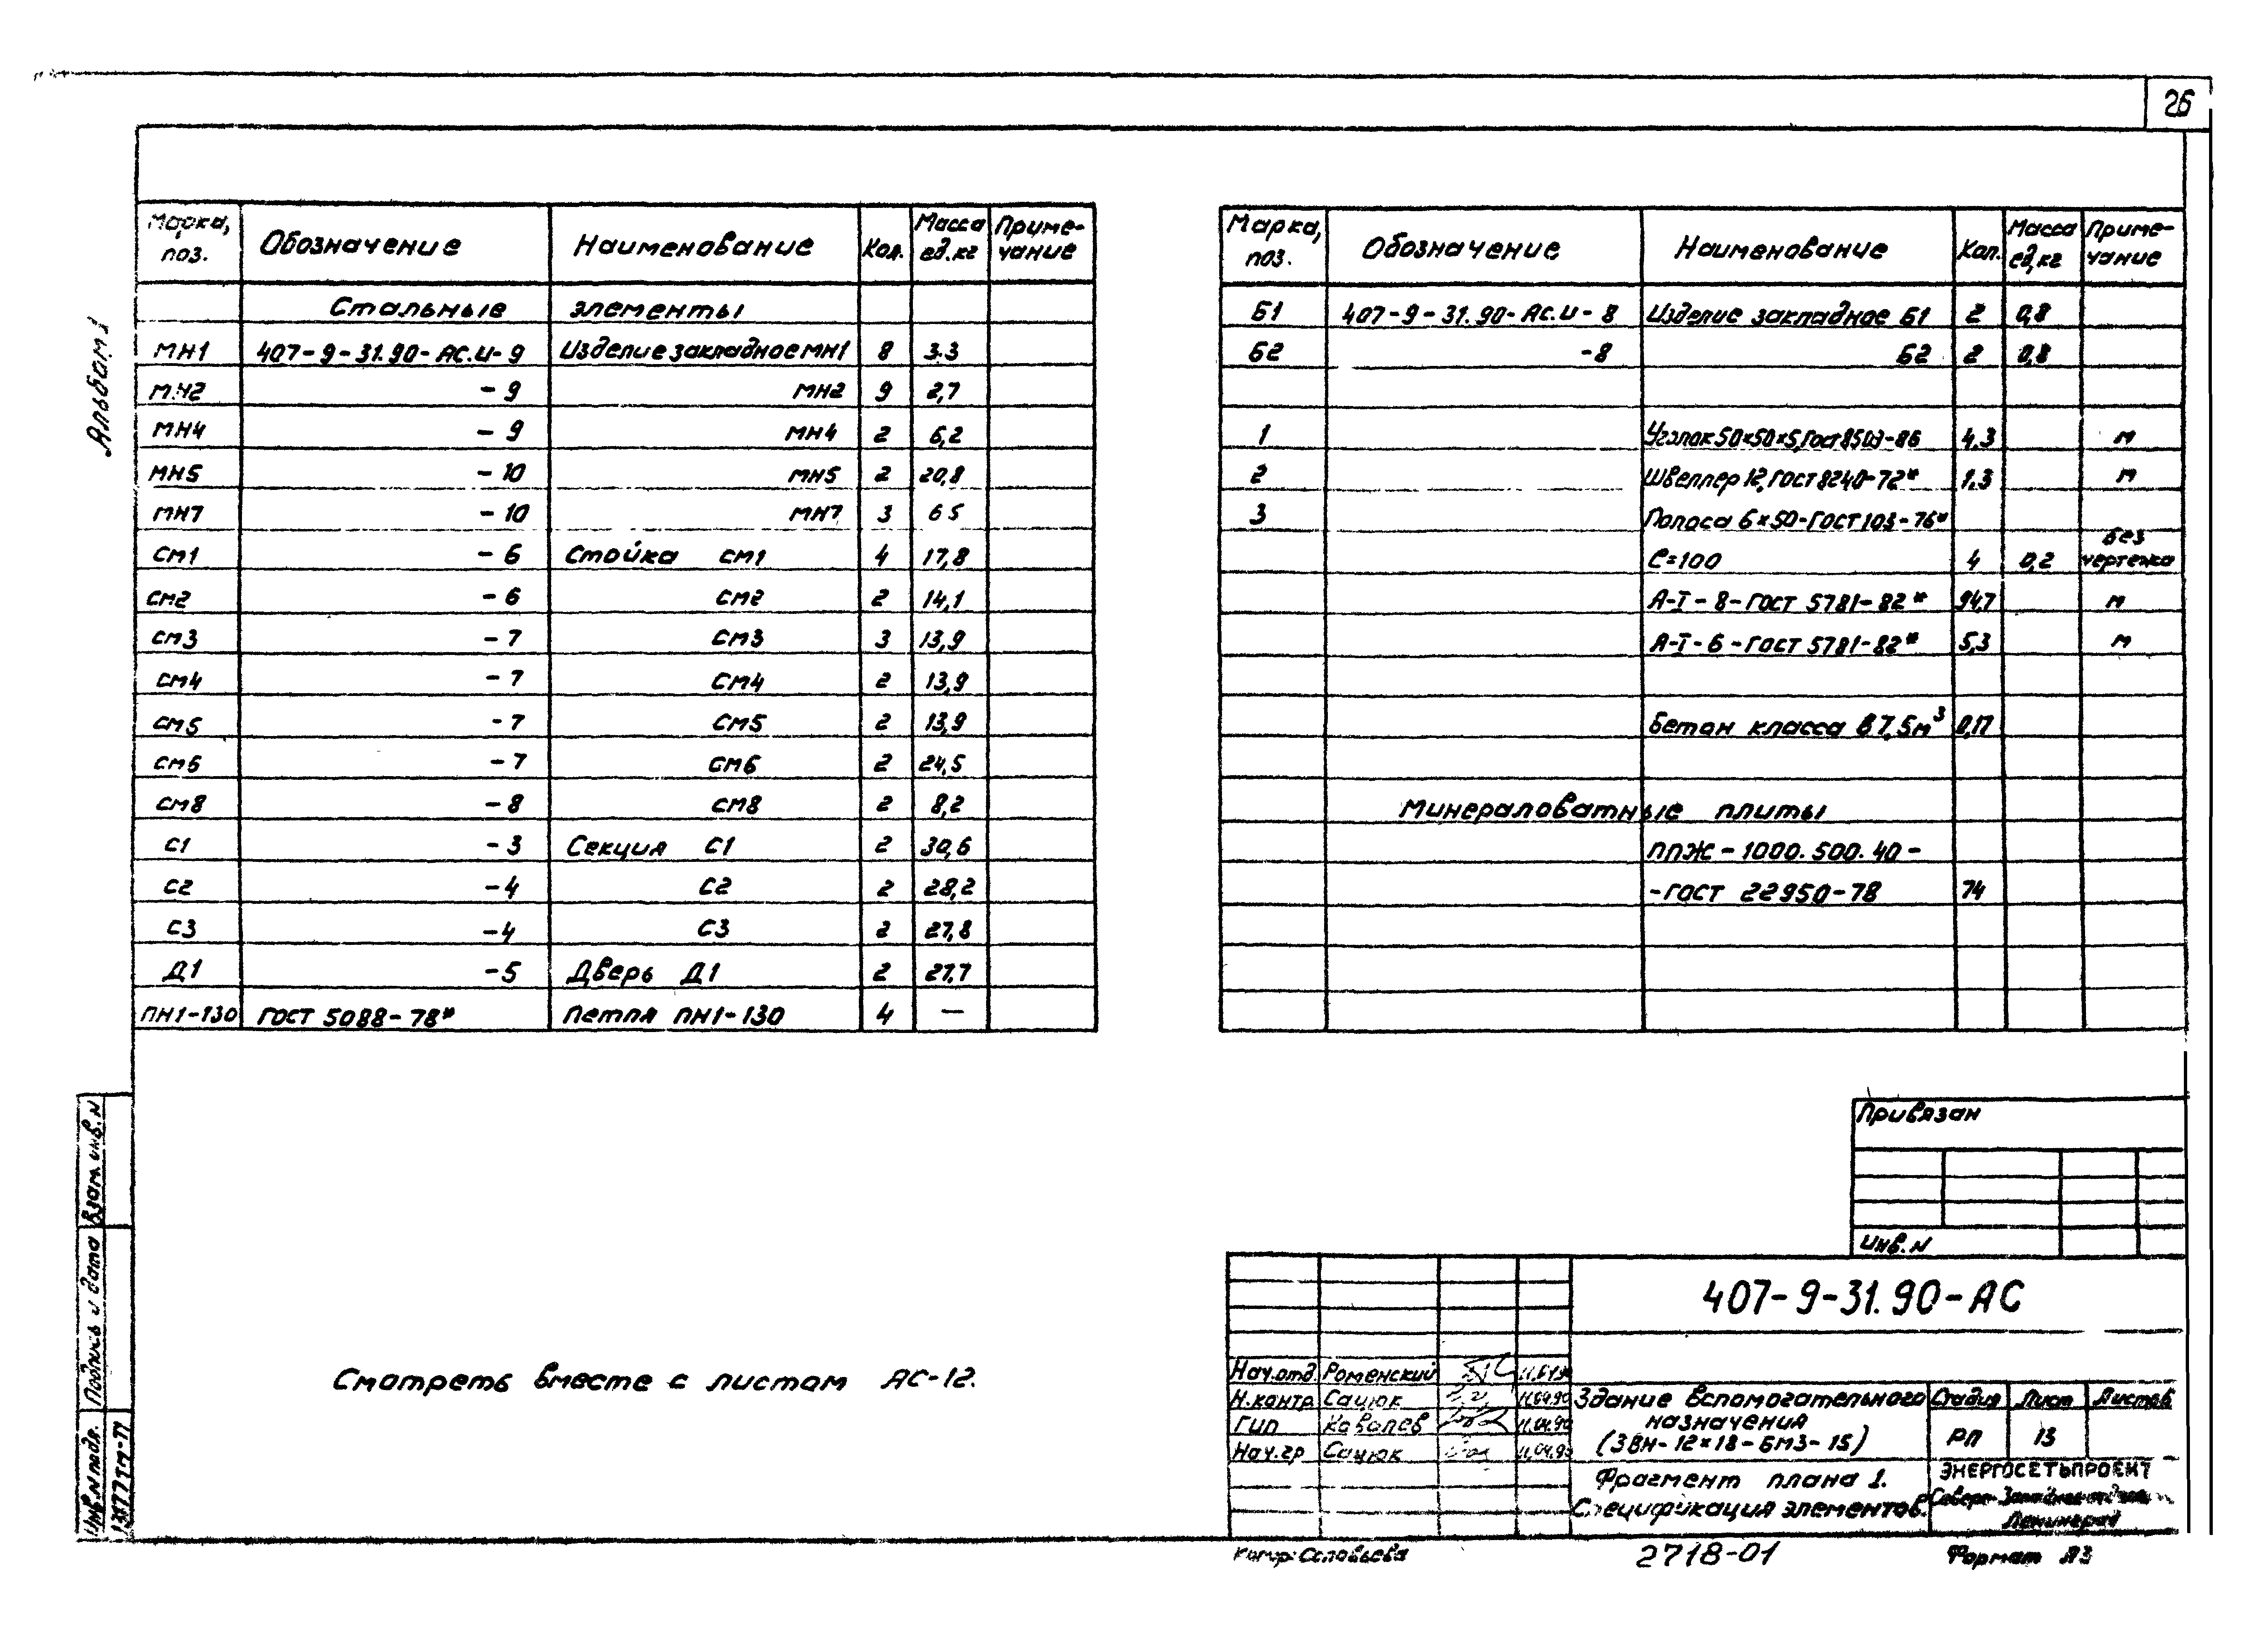 26
Альбом 1
Марка, поз. Обозначение Наименование Кол. Масса ед.кг Примечание
Стальные элементы
МН1 407-9-31.90-АС.И-9 Изделие закладное МН1 8 3.3
МН2 -9 МН2 9 2,7
МН4 -9 МН4 2 6,2
МН5 -10 МН5 2 20,8
МН7 -10 МН7 3 6 5
СМ1 -6 Стойка СМ1 4 17,8
СМ2 -6 СМ2 2 14,1
СМ3 -7 СМ3 3 13,9
СМ4 -7 СМ4 2 13,9
СМ5 -7 СМ5 2 13,9
СМ6 -7 СМ6 2 24,5
СМ8 -8 СМ8 2 8,2
С1 -3 Секция С1 2 30,6
С2 -4 С2 2 28,2
С3 -4 С3 2 27,8
Д1 -5 Дверь Д1 2 27,7
ПН1-130 ГОСТ 5088-78* Петля ПН1-130 4 —
Марка, поз. Обозначение Наименование Кол. Масса ед,кг Примечание
Б1 407-9-31.90-АС.И-8 Изделие закладное Б1 2 0,8
Б2 -8 Б2 2 0,8
1 Уголок 50×50×5,ГОСТ 8509-86 4,3 м
2 Швеллер 12,ГОСТ 8240-72* 1,3 м
3 Полоса 6×50-ГОСТ 103-76*
ℓ=100 4 0,2 без чертежа
А-I-8-ГОСТ 5781-82* 94,7 м
А-I-6-ГОСТ 5781-82* 5,3 м
Бетон класса В7,5 м³ 0,17
Минераловатные плиты
ППЖ-1000.500.40-
-ГОСТ 22950-78 74
Привязан
Инв.N
Взам. инв.N
Подпись и дата
Инв.N подл.
Смотреть вместе с листом АС-12.
407-9-31.90-АС
Нач.отд. Роменский
Н.контр Сацюк 11.04.90
ГИП Ковалев 11.04.90
Нач.гр Сацюк 11.04.90
Здание вспомогательного
назначения
(ЗВН-12×18-БМЗ-15)
Стадия Лист Листов
РП 13
Фрагмент плана 1.
Спецификация элементов.
ЭНЕРГОСЕТЬПРОЕКТ
Северо-Западное отделение
Ленинград
Копир: Соловьева
2718-01
Формат А3